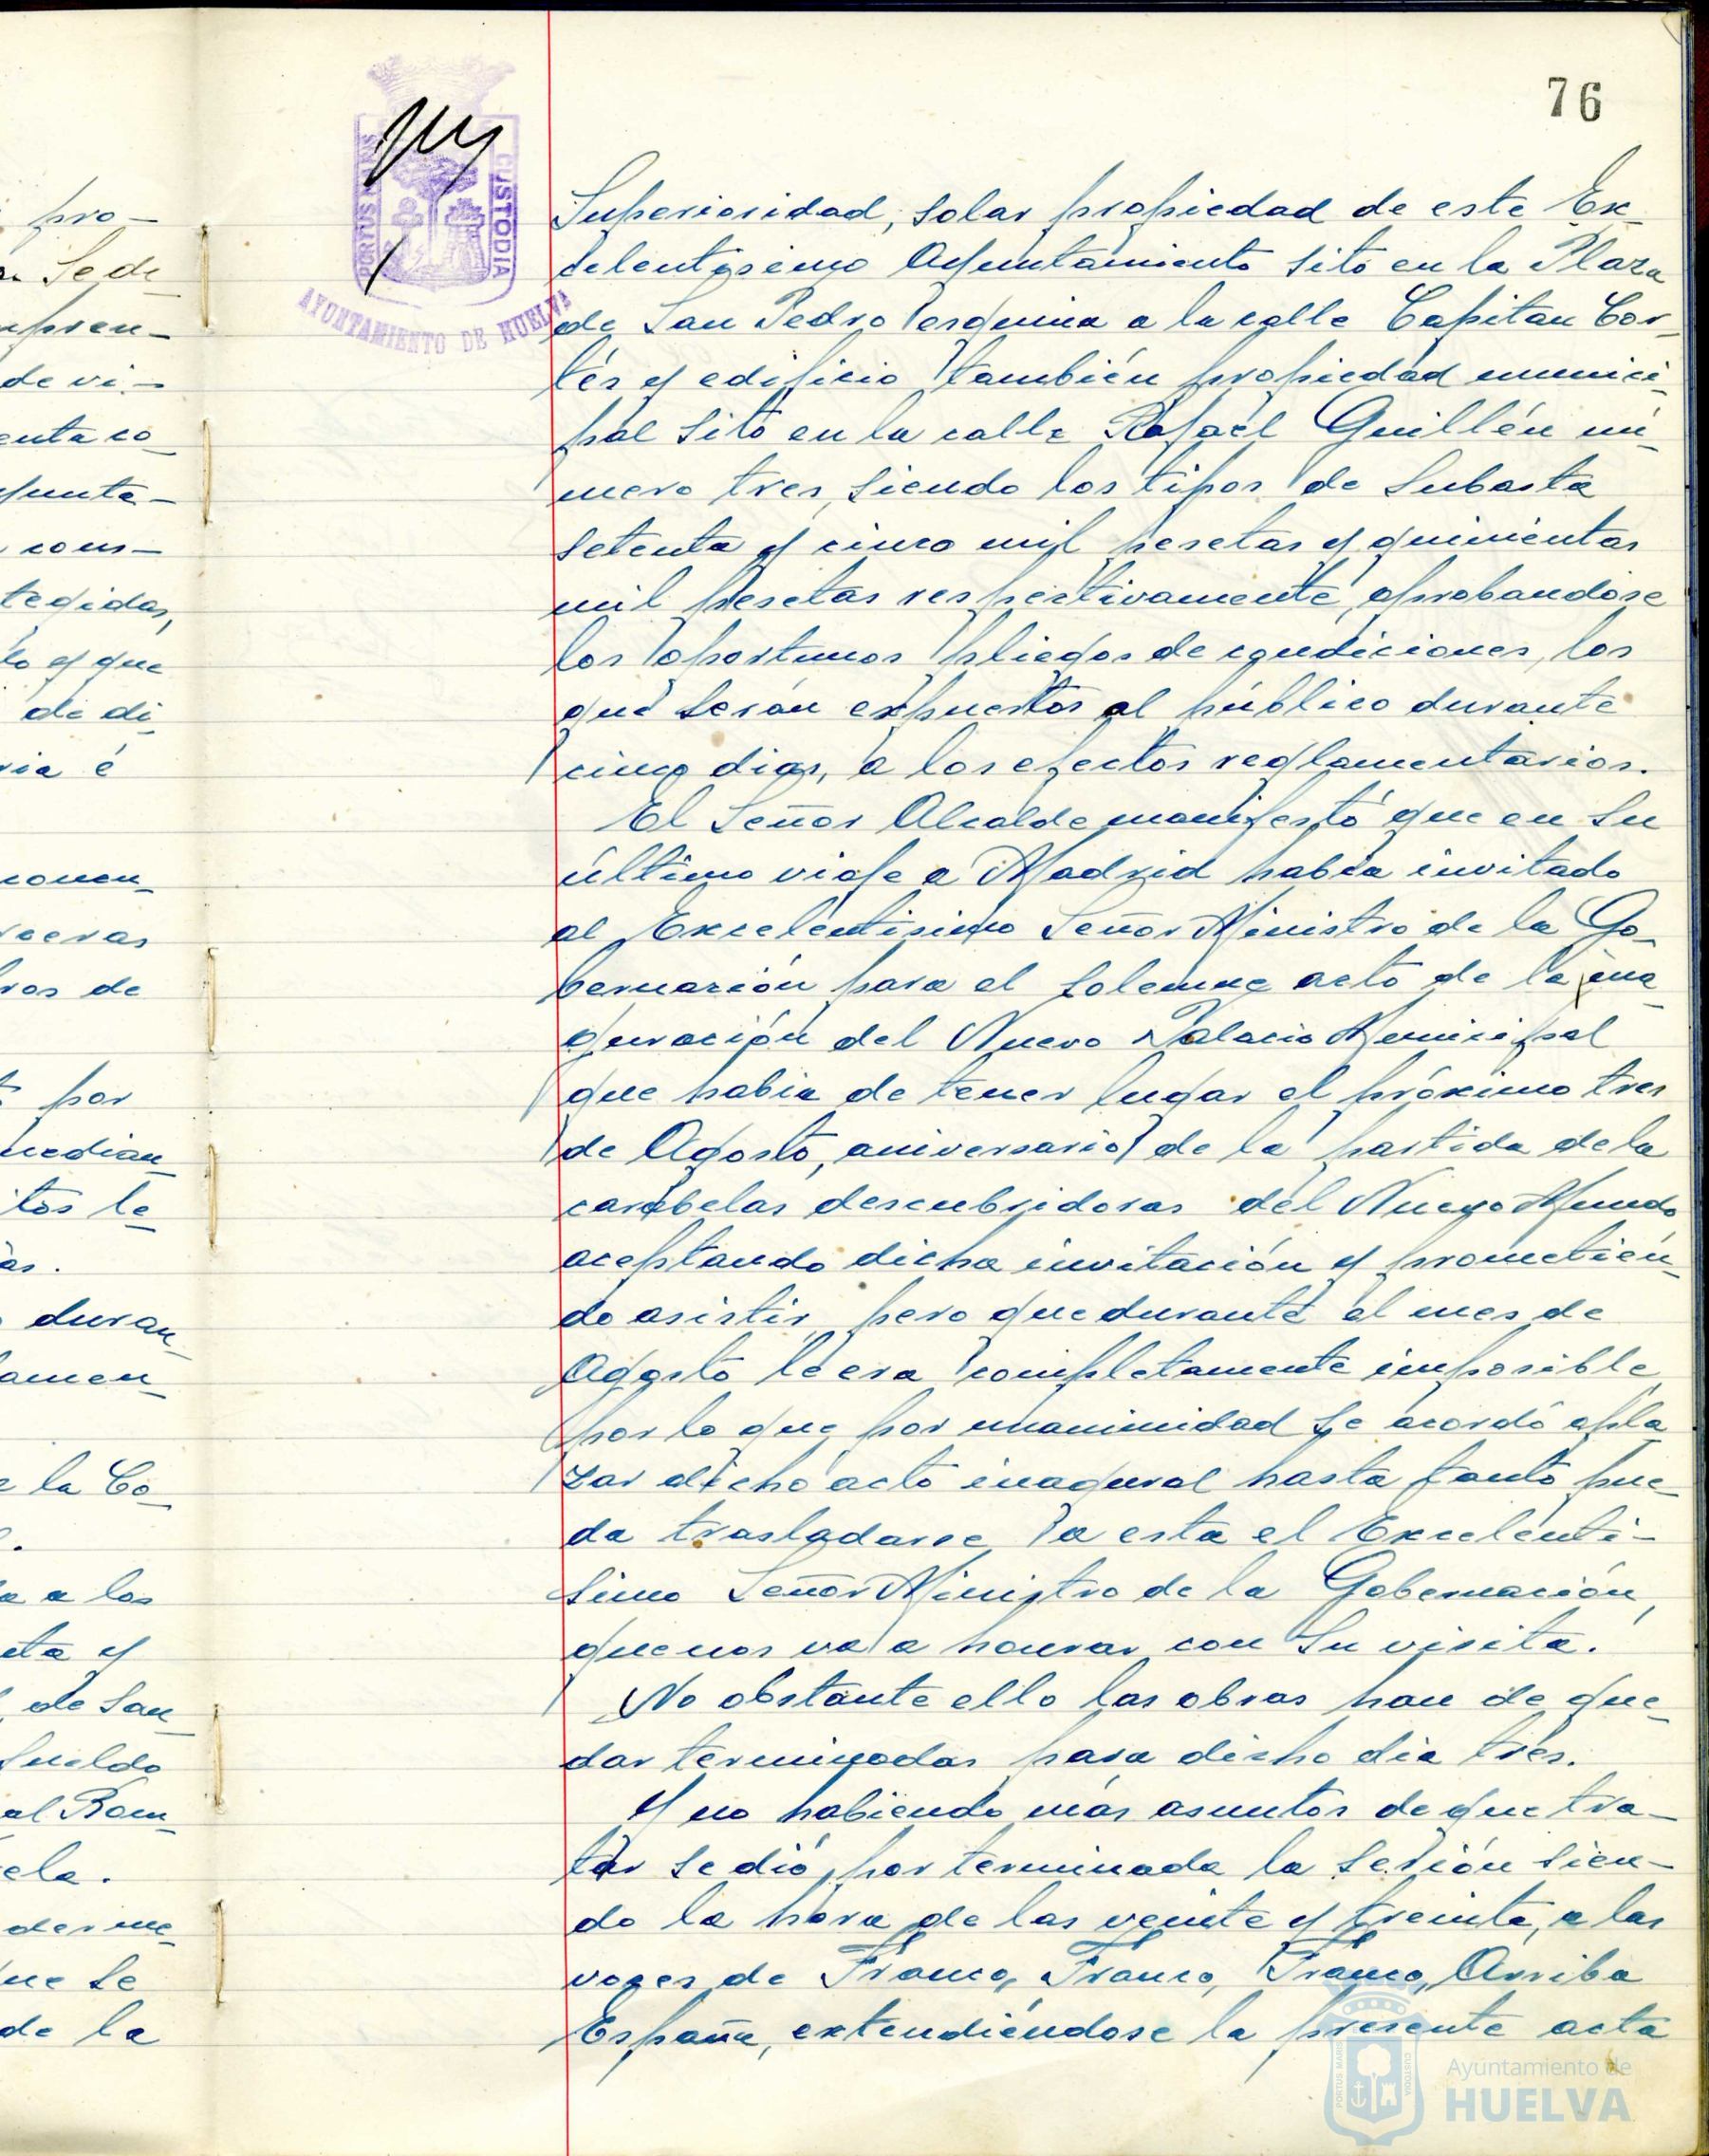 76
PORTUS MARIS
CUSTODIA
AYUNTAMIENTO DE HUELVA
pro-
Sede
pren-
de vi-
enta co-
yunta-
cons-
tegidas,
lo y que
de di-
ria é
conven-
ros de
por
median-
tos le-
as.
duran-
lamen-
e la Co-
a a los
eta y
de San
Sueldo
al Rom-
ela.
que se
de la
Superioridad, solar propiedad de este Ex-
celentisimo Ayuntamiento sito en la Plaza
de San Pedro esquina a la calle Capitan Cor-
tés y edificio también propiedad munici-
pal sito en la calle Rafael Guillén nú-
mero tres, siendo los tipos de subasta
setenta y cinco mil pesetas y quinientas
mil pesetas respectivamente, aprobandose
los oportunos pliegos de condiciones, los
que serán expuestos al público durante
cinco dias, a los efectos reglamentarios.
El Señor Alcalde manifestó que en su
último viaje a Madrid habia invitado
al Excelentisimo Señor Ministro de la Go-
bernación para el solemne acto de la ina-
guración del Nuevo Palacio Municipal
que habia de tener lugar el próximo tres
de Agosto, aniversario de la partida de la
carabelas descubridoras del Nuevo Mundo
aceptando dicha invitación y prometien-
do asistir, pero que durante el mes de
Agosto le era completamente imposible,
por lo que por unanimidad se acordó apla-
zar dicho acto inagural hasta tanto pue-
da trasladarse a esta el Excelenti-
simo Señor Ministro de la Gobernación,
que nos va a honrar con su visita.
No obstante ello las obras han de que-
dar terminadas para dicho dia tres.
Y no habiendo más asuntos de que tra-
tar se dió por terminada la sesión sien-
do la hora de las veinte y treinta, a las
voces de Franco, Franco, Franco, Arriba
España, extendiéndose la presente acta
PORTUS MARIS CUSTODIA
Ayuntamiento de
HUELVA